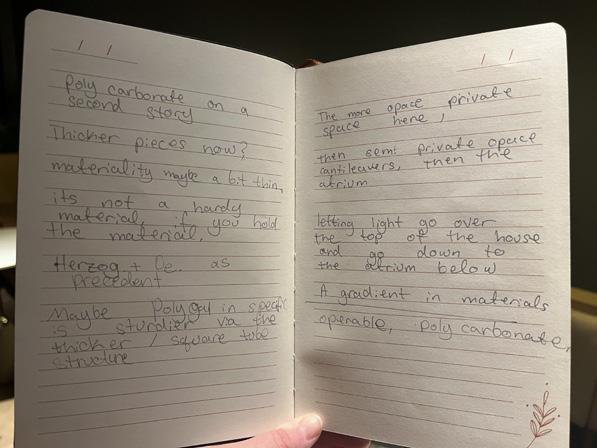 / /
Poly carbonate on a
second story
Thicker pieces now?
materiality maybe a bit thin,
its not a hardy
material, if you hold
the material,
Herzog + De. as
precedent
Maybe Polygal in specific
is sturdier via the
thicker / square tube
structure
/ /
The more opace private
space here,
then semi private opace
cantileavers, then the
atrium
letting light go over
the top of the house
and go down to
the atrium below
A gradient in materials
operable, polycarbonate,